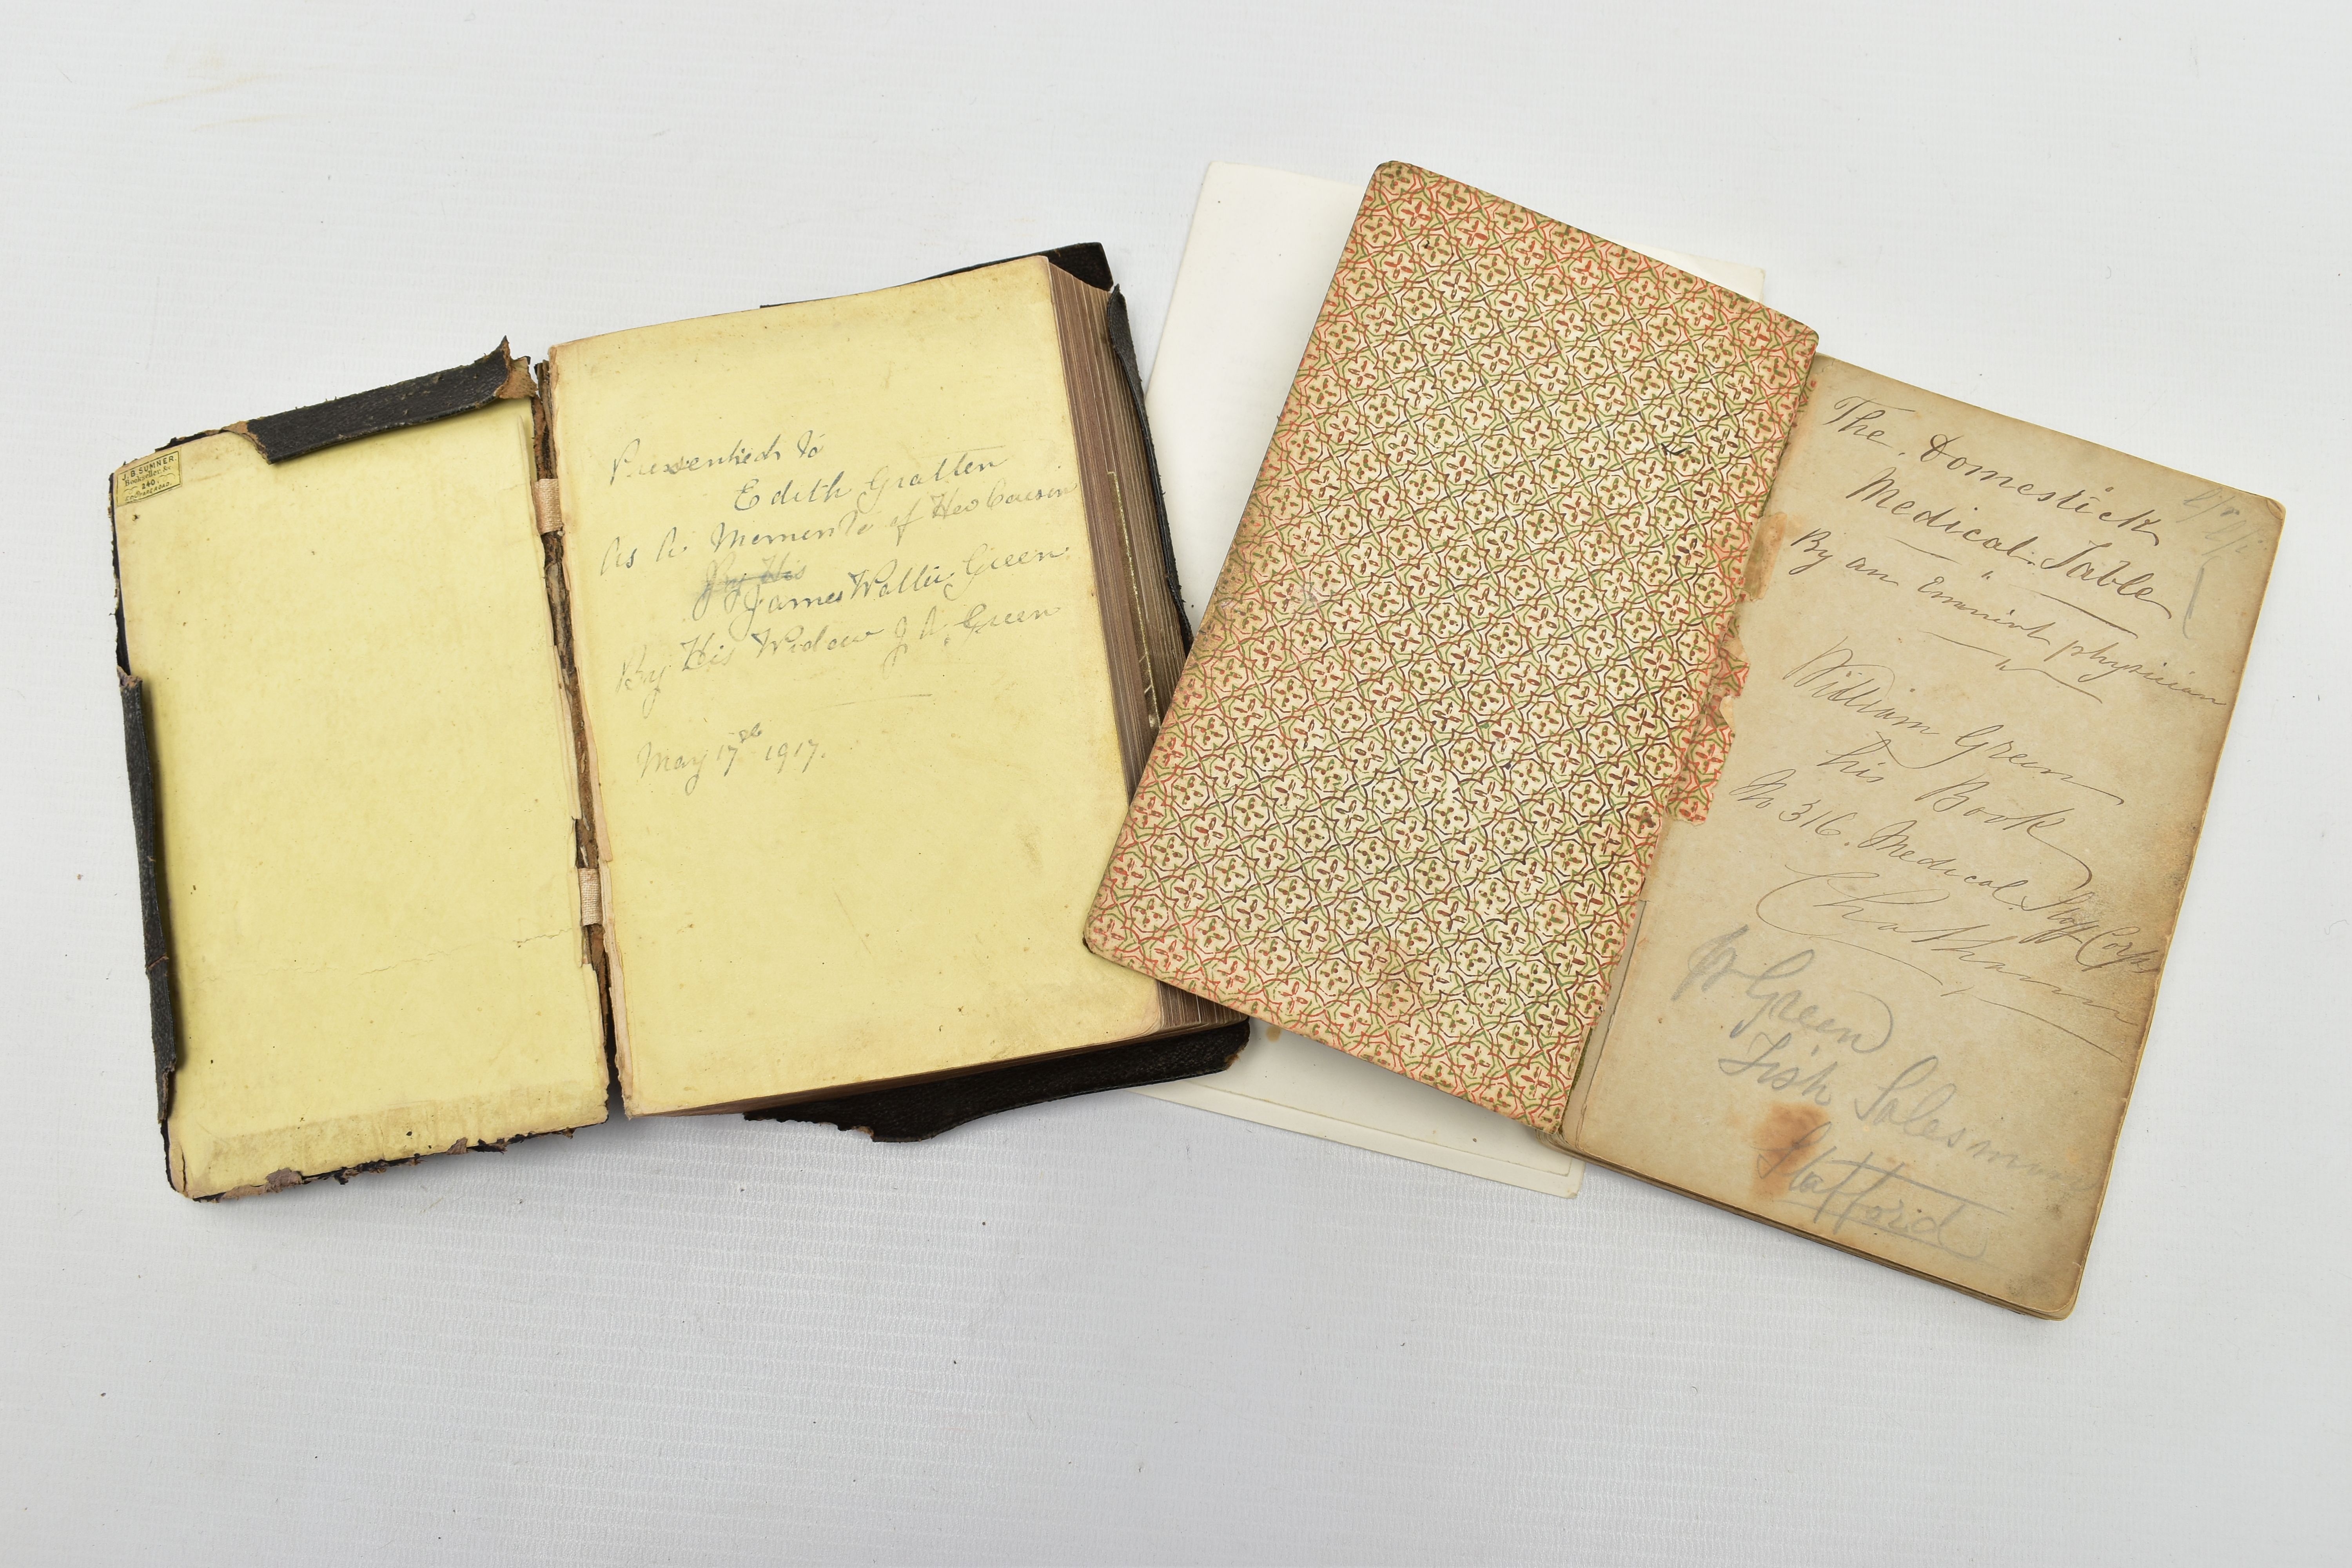 J.B. SUMNER.
Bookseller &c
240.
Presented to
Edith Gratten
As A Memento of Her Cousin
By His
James Wallis Green.
By His Widow J A. Green
May 17th 1917.
The Domestick
Medical Table
By an Eminint physician
William Green
his Book
No 316. Medical Staff Corps
Chatham
W Green
Fish Salesman
Stafford